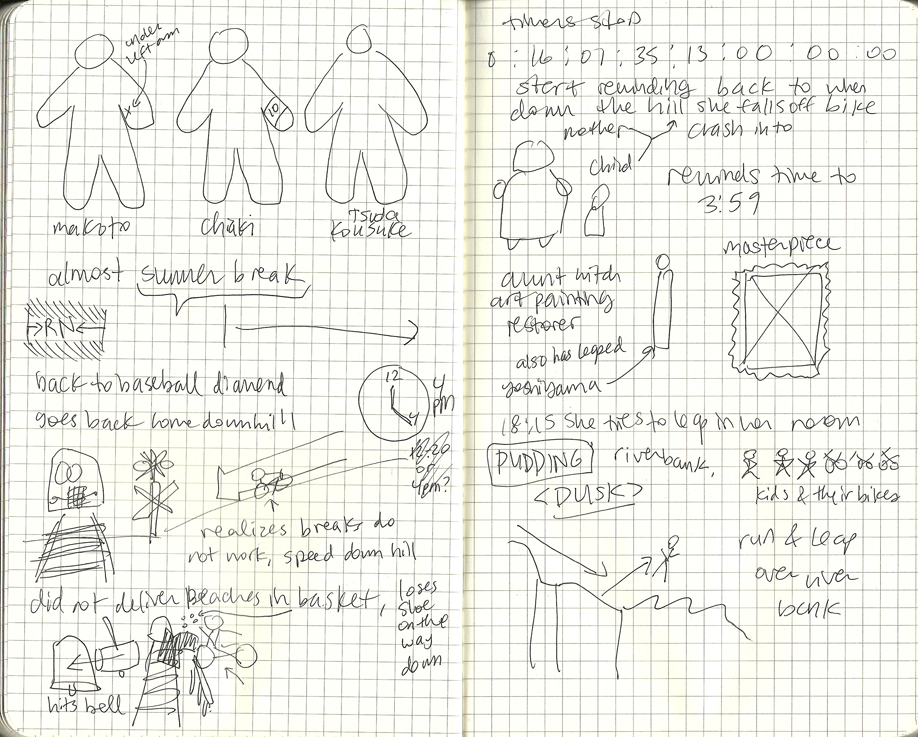 under
left arm
x
10
makoto
chiaki
Tsuda
Kousuke
almost summer break
RN
back to baseball diamond
goes back home downhill
12
4
4
pm
12:20
or
4pm?
realizes breaks do
not work, speed down hill
did not deliver peaches in basket,
loses
shoe
on the
way
down
hits bell
timers stop
0:16:07:35:13:00:00:00
start rewinding back to when
down the hill she falls off bike
mother
crash into
child
rewinds time to
3:59
aunt witch
art painting
restorer
also has leaped
yoshiyama
masterpiece
18:15 she tries to leap in her room
PUDDING
riverbank,
<DUSK>
kids & their bikes
run & leap
over river
bank